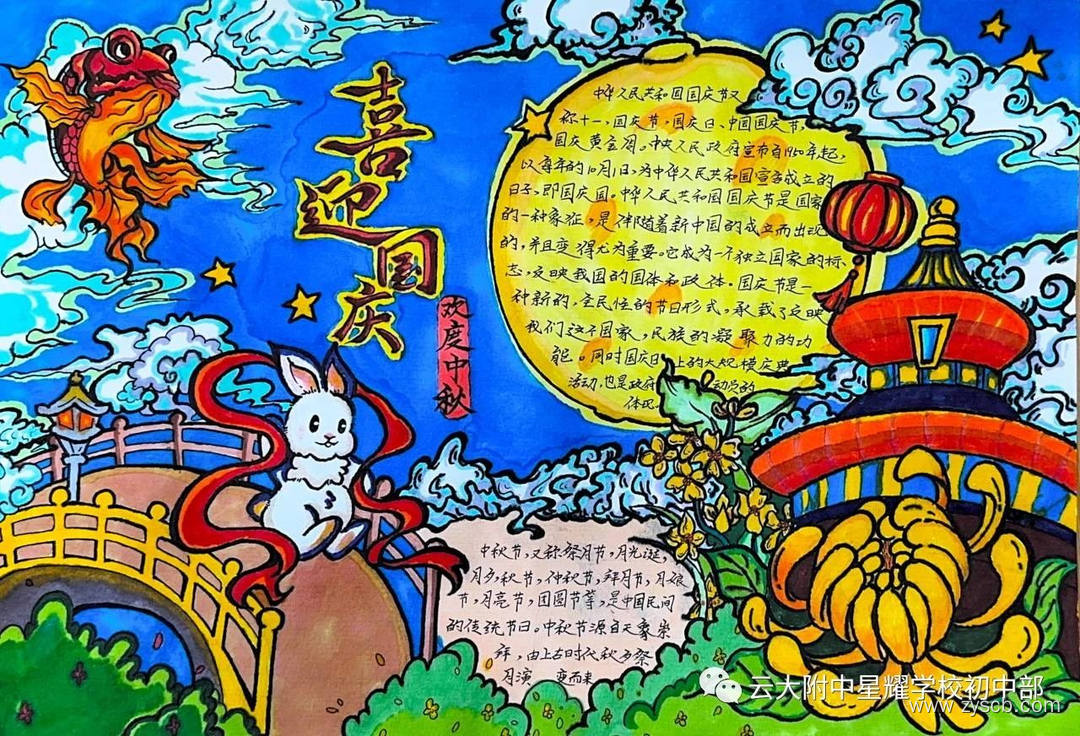 喜迎国庆
欢度中秋
中华人民共和国国庆节又
称十一,国庆节,国庆日、中国国庆节,
国庆黄金周。中央人民政府宣布自1950年起,
以每年的10月1日,为中华人民共和国宣告成立的
日子,即国庆国。中华人民共和国国庆节是国家
的一种象征,是伴随着新中国的成立而出现
的,并且变得尤为重要。它成为一个独立国家的标
志,反映我国的国体和政体。国庆节是一
种新的,全民性的节日形式,承载了反映
我们这个国家,民族的凝聚力的功
能。同时国庆日上的大规模庆典
活动,也是政府动员的
体现。
中秋节,又称祭月节,月光诞,
月夕,秋节,仲秋节,拜月节,月娘
节,月亮节,团圆节等,是中国民间
的传统节日。中秋节源自天象崇
拜,由上古时代秋夕祭
月演变而来
云大附中星耀学校初中部
www.zyscb.com